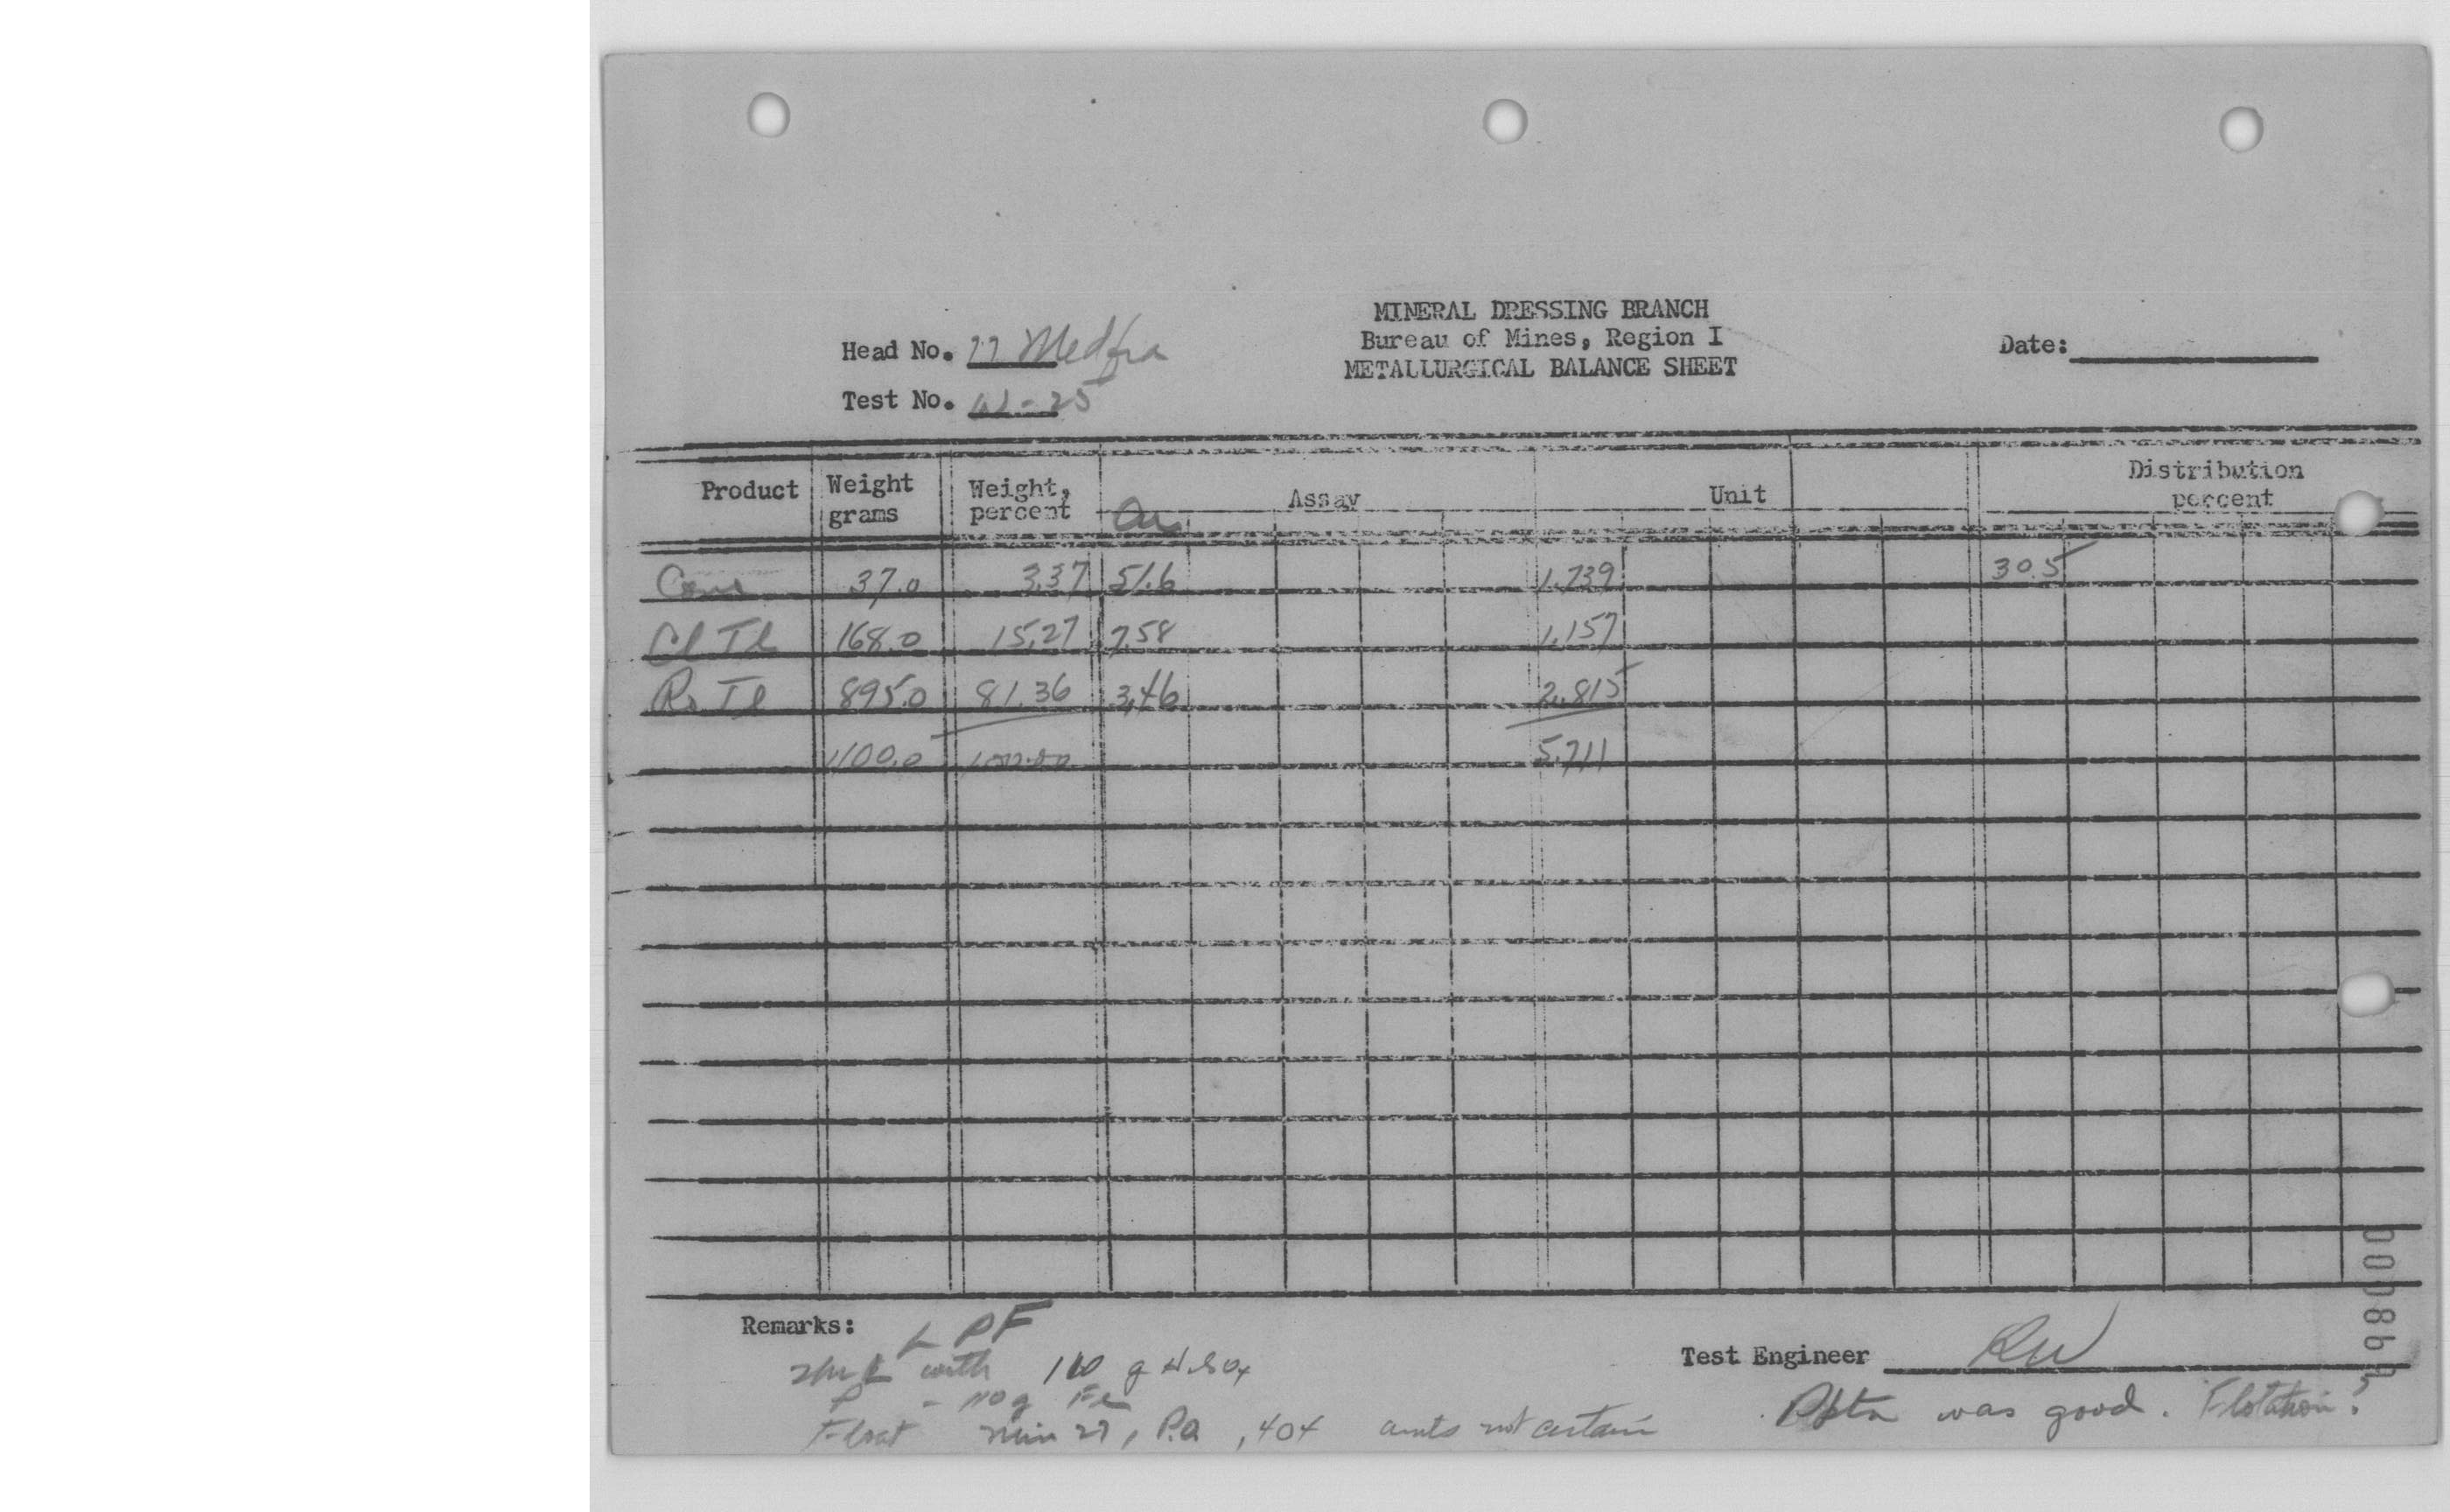 MINERAL DRESSING BRANCH
Bureau of Mines, Region I
METALLURGICAL BALANCE SHEET
Head No. 22 Medfra
Test No. W-25
Date:
Product Weight grams Weight, percent Assay Unit Distribution percent
Cu
Conc 37.0 3.37 51.6 1.739 30.5
Cl Tl 168.0 15.27 7.58 1.157
Ro Tl 895.0 81.36 3.46 2.815
1100.0 100.00 5.711
Remarks: LPF
with 110 g H2SO4
P - 110g Fe
Float Min 27, P.O , 404 amts not certain
Test Engineer RW
Pptn was good. Flotation?
000869